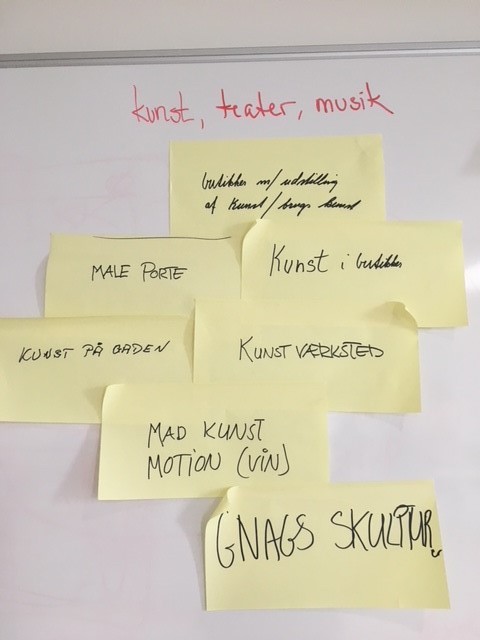 kunst, teater, musik
butikker m/ udstilling
af kunst / brugs kunst
MALE PORTE
Kunst i butikker
KUNST PÅ GADEN
KUNST VÆRKSTED
MAD KUNST
MOTION (VIN)
GNAGS SKULPTUR